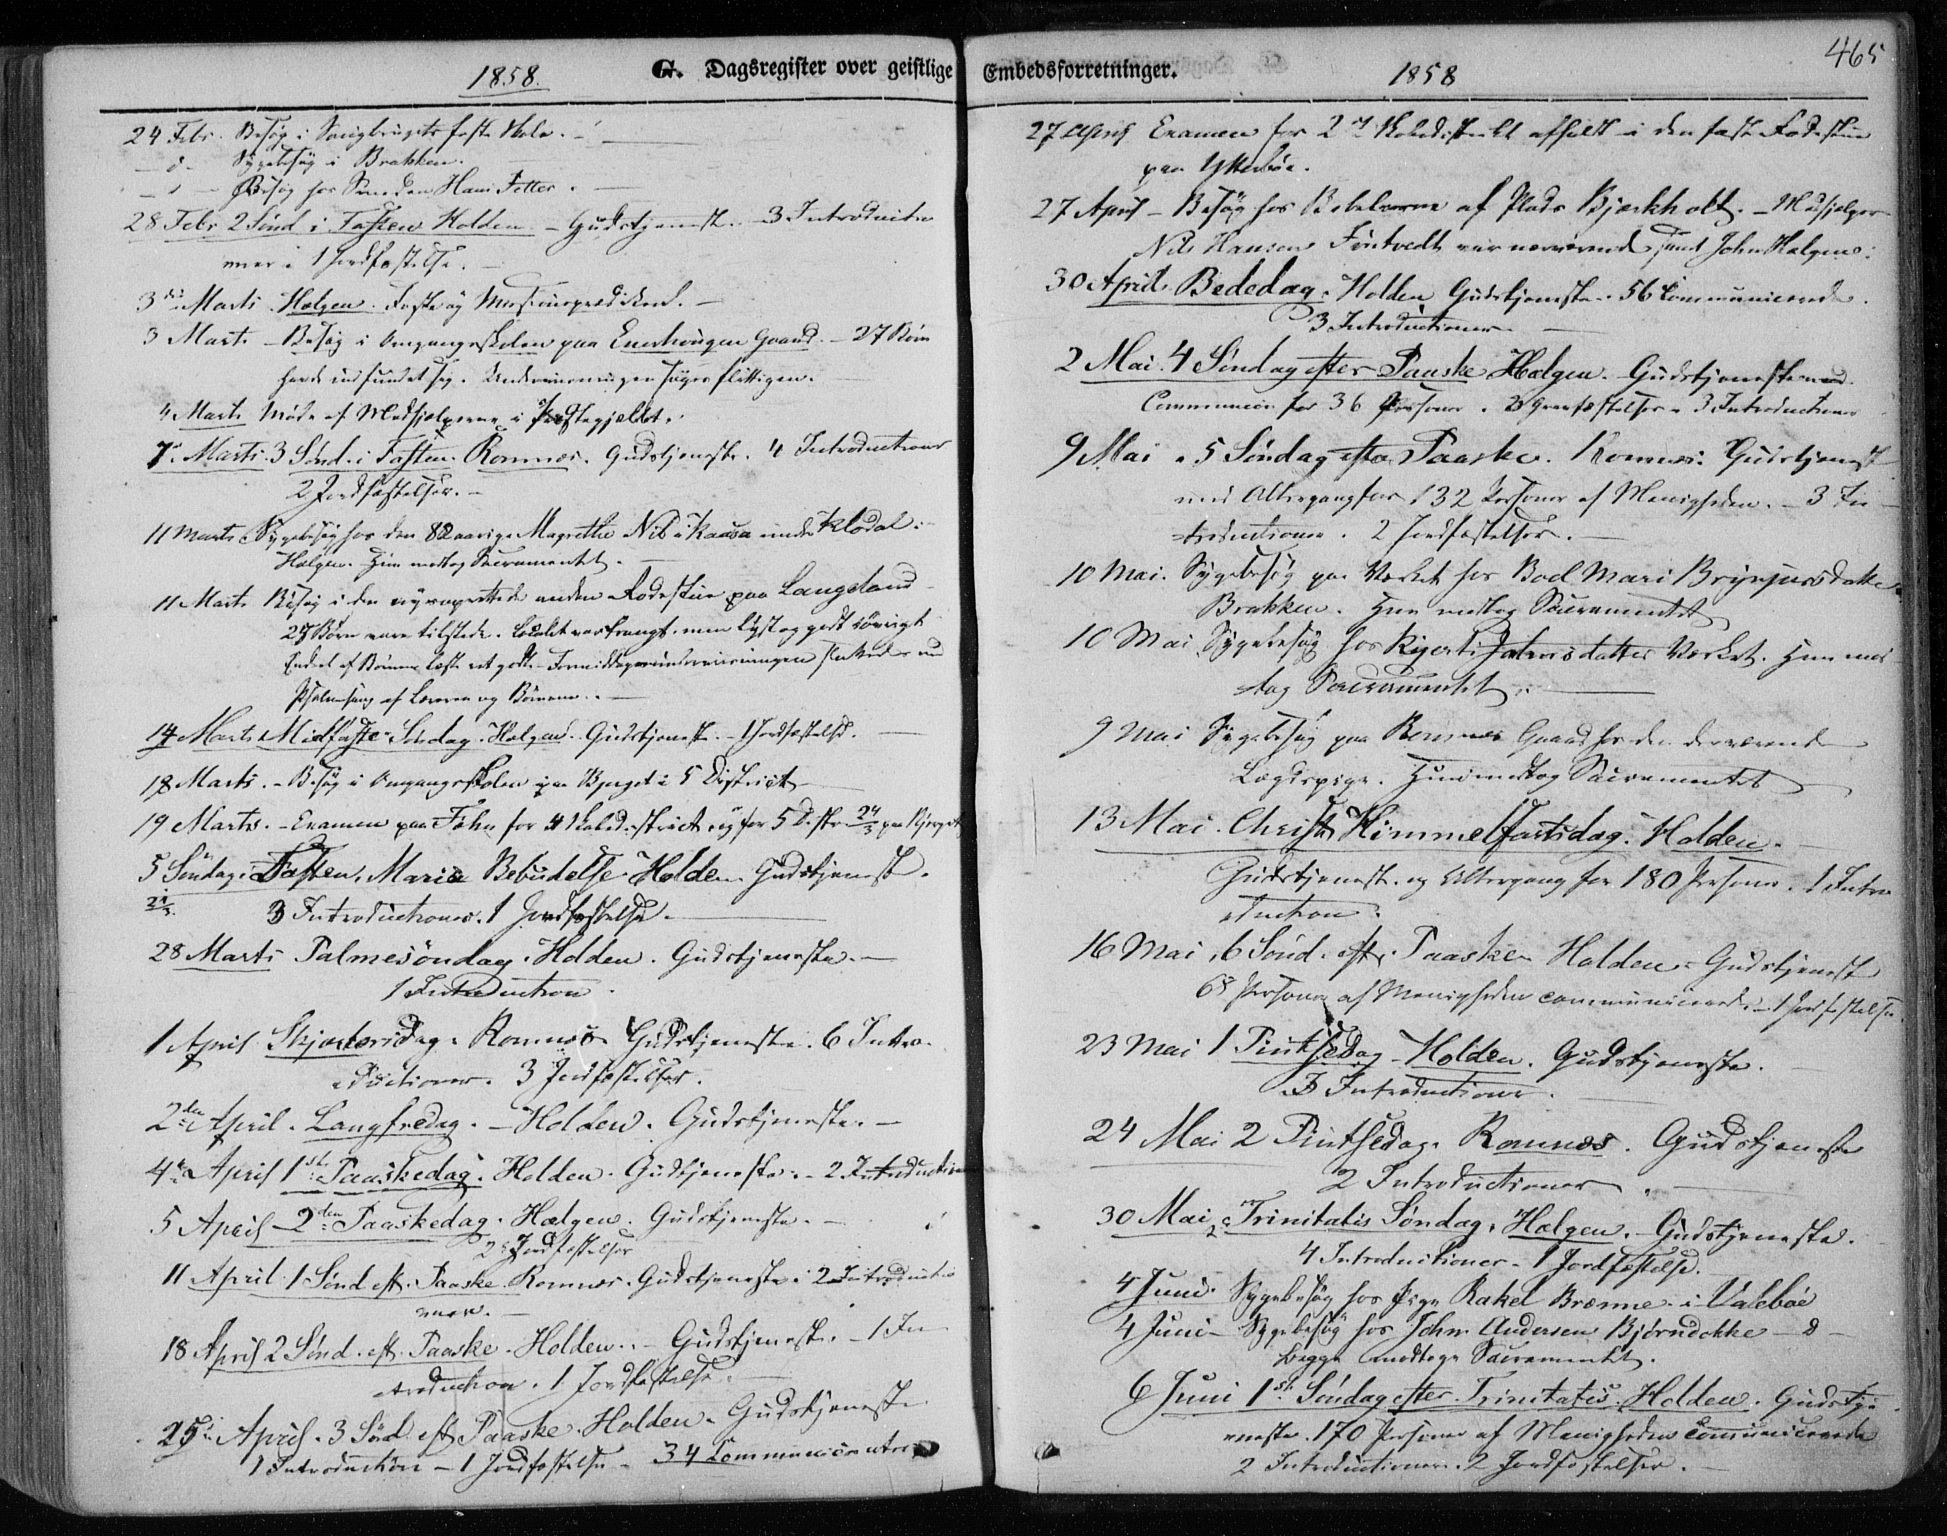 1858.
G. Dagsregister over geistlige
24 Febr. Besøg i faste Skole.
- d - Sygebesøg i Brækken.
Besøg hos Smeden Hans Fetter.
28 Febr 2 Sönd i Fasten Holden - Gudstjeneste. 3 Introductio
ner i 1 Jordfæstelse.
3die Marts Hælgen. Faste og Missionsprædiken. -
3 Marts - Besøg i Omgangsskolen paa Gaard. - 27 Børn
havde indfundet sig. Underviisningen søges flittigen.
4 Marts Møde af Medhjælperne i Præstegjældet.
7de Marts. 3 Sönd. i Fasten. Romnæs. Gudstjeneste. 4 Introductioner
2 Jordfæstelser. -
11 Marts Sygebesøg hos den 82 aarige Magrethe Nils under Klodal.
Hælgen. Hun modtog Sacramentet.
11 Marts Besøg i den nyoprettede anden Rodestue paa Langeland
27 Børn vare tilstede. Localet var trangt, men lyst og godt iøvrigt
Endeel af Børnene læste ret godt. Formiddagsunderviisningen sluttedes med
Psalmesang af Læreren og Børnene. -
14 Marts Midfaste Söndag. Hælgen. Gudstjeneste. - 1 Jordfæstelse.
18 Marts. - Besøg i Omgangsskolen paa Bjerget i 5 District
19 Marts. - Examen paa Fæhn for 4 Skoledistrict og for 5 Distr 24/3 paa Bjerget
5 Söndag i Fasten. Mariæ Bebudelse. Holden. Gudstjeneste.
21/3. 3 Introductioner. 1 Jordfæstelse.
28 Marts Palmesöndag. Holden. Gudstjeneste. -
1 Introduction.
1 April Skjærtorsdag. Romnæs Gudstjeneste. 6 Intro-
ductioner. 3 Jordfæstelser.
2den April. Langfredag. - Holden. Gudstjeneste. -
4de April 1ste Paaskedag. Holden. Gudstjeneste. - 2 Introduction
5 April - 2den Paaskedag. Hælgen. Gudstjeneste. -
2 Jordfæstelser
11 April 1 Sönd eft. Paaske. Romnæs. Gudstjeneste. 2 Introductio
ner. -
18 April 2 Sönd. eft. Paaske. Holden. - Gudstjeneste. - 1 In
troduction. 1 Jordfæstelse.
25de April. 3 Sönd eft Paaske. Holden. Gudstjeneste
1 Introduction - 1 Jordfæstelse - 34 Communicanter
Embedsforretninger.
1858
465
27 April Examen for 2det Skoledistrikt afholdt i den faste Rodestue
paa Ytterbøe.
27 April - Besøg hos Beboerne af Plads Bjærkholt. - Medhjælper
Nils Hansen Findtvedt var nærværende samt John Hælgen.
30 April Bededag. Holden Gudstjeneste. 56 Communicerede.
3 Introductioner.
2 Mai. 4 Söndag efter Paaske Hælgen. Gudstjeneste med
Communion for 36 Personer. 2 Gravfæstelser. 3 Introductioner
9 Mai. 5 Söndag efter Paaske. Romnæs. Gudstjeneste
med Altergang for 132 Personer af Menigheden. - 3 In
troductioner. 2 Jordfæstelser. -
10 Mai. Sygebesøg paa Værket hos Boel Mari Brynjursdatter
Brækken. Hun modtog Sacramentet
10 Mai Sygebesøg hos Kjersti Johnsdatter Værket. Hun mod
tog Sacramentet.
9 Mai Sygebesøg paa Romnæs Gaard hos den derværende
Lægdspige. Hun modtog Sacramentet
13 Mai. Christi Himmelfartsdag. Holden.
Gudstjeneste og Altergang for 180 Personer. 1 Intro
duction.
16 Mai. 6 Sönd. eft. Paaske. Holden. Gudstjeneste
68 Personer af Menigheden communicerede. - 1 Jordfæstelse
23 Mai 1 Pintsedag. Holden. Gudstjeneste.
3 Introductioner.
24 Mai 2 Pintsedag. Romnæs. Gudstjeneste
2 Introductioner.
30 Mai Trinitatis Söndag. Hælgen. Gudstjeneste.
4 Introductioner. 1 Jordfæstelse.
4 Juni. Sygebesøg hos Pige Rakel Brænne i Valebøe
4 Juni - Sygebesøg hos John Andersen - d -
begge modtoge Sacramentet.
6 Juni 1ste Söndag efter Trinitatis. Holden. Gudstje
neste. 170 Personer af Menigheden communicerede
2 Introductioner. 2 Jordfæstelser. -